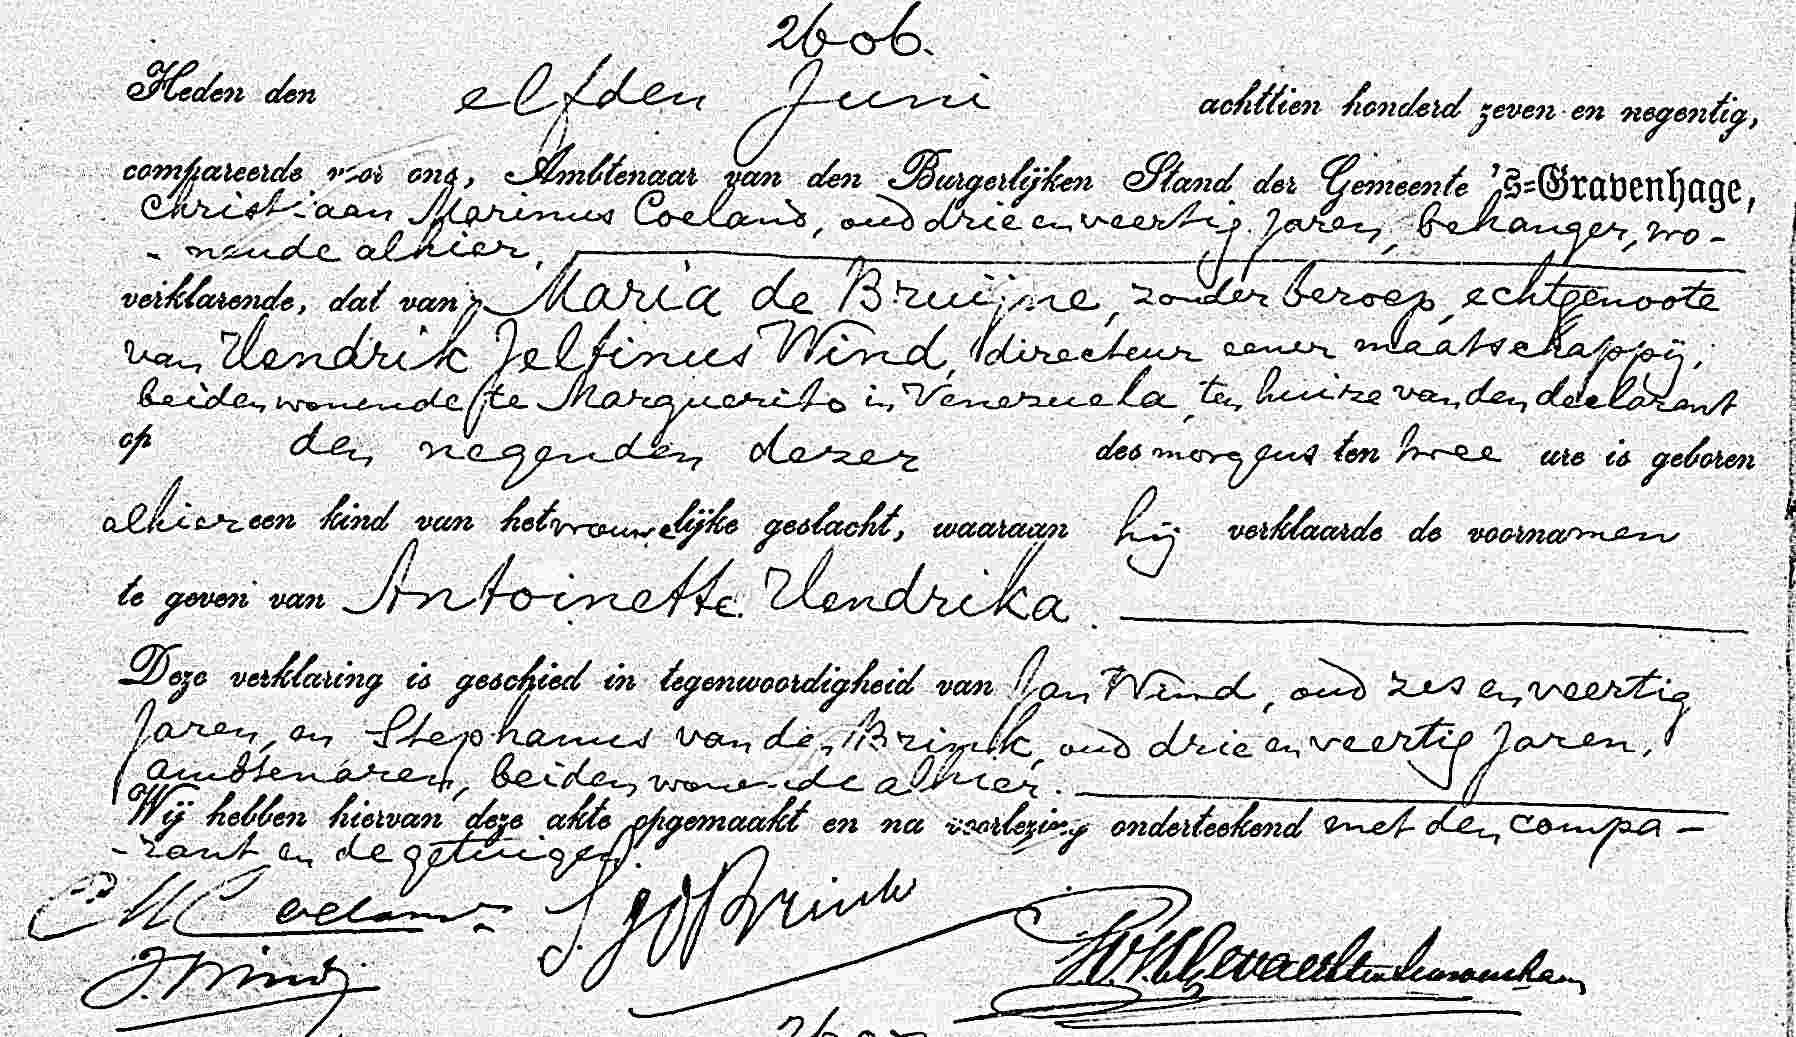 2606.
Heden den elfden Juni achttien honderd zeven en negentig,
compareerde voor ons, Ambtenaar van den Burgerlijken Stand der Gemeente 's=Gravenhage,
Christiaan Marinus Coelans, oud drie en veertig jaren, behanger, wo-
- nende alhier,
verklarende, dat van Maria de Bruijne, zonder beroep, echtgenoote
van Hendrik Jelfinus Wind, directeur eener maatschappij,
beiden wonende te Marguerito in Venezuela, ten huize van den declarant
op den negenden dezer des morgens ten twee ure is geboren
alhier een kind van het vrouwelijke geslacht, waaraan hij verklaarde de voornamen
te geven van Antoinette Hendrika.
Deze verklaring is geschied in tegenwoordigheid van Jan Wind, oud zes en veertig
jaren, en Stephanus van den Brink, oud drie en veertig jaren,
ambtenaren, beiden wonende alhier.
Wij hebben hiervan deze akte opgemaakt en na voorlezing onderteekend met den compa-
-rant en de getuigen.
CM Coelans S. vd Brink
J. Wind